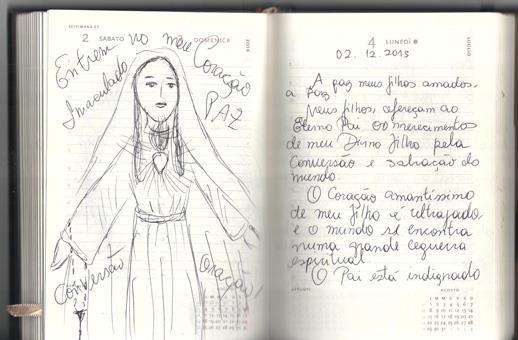 SETTIMANA 27
2 SABATO
3 DOMENICA
Entrem no meu Coração
Imaculado
PAZ
Conversão
Oração
4 LUNEDÌ
LUGLIO
02.12.2015
A paz meus filhos amados,
a Paz
Meus filhos, ofereçam ao
Eterno Pai os merecimentos
de meu Divino Filho pela
Conversão e salvação do
mundo.
O Coração amantíssimo
de meu Filho é ultrajado
e o mundo se encontra
numa grande cegueira
espiritual.
O Pai está indignado
AGOSTO